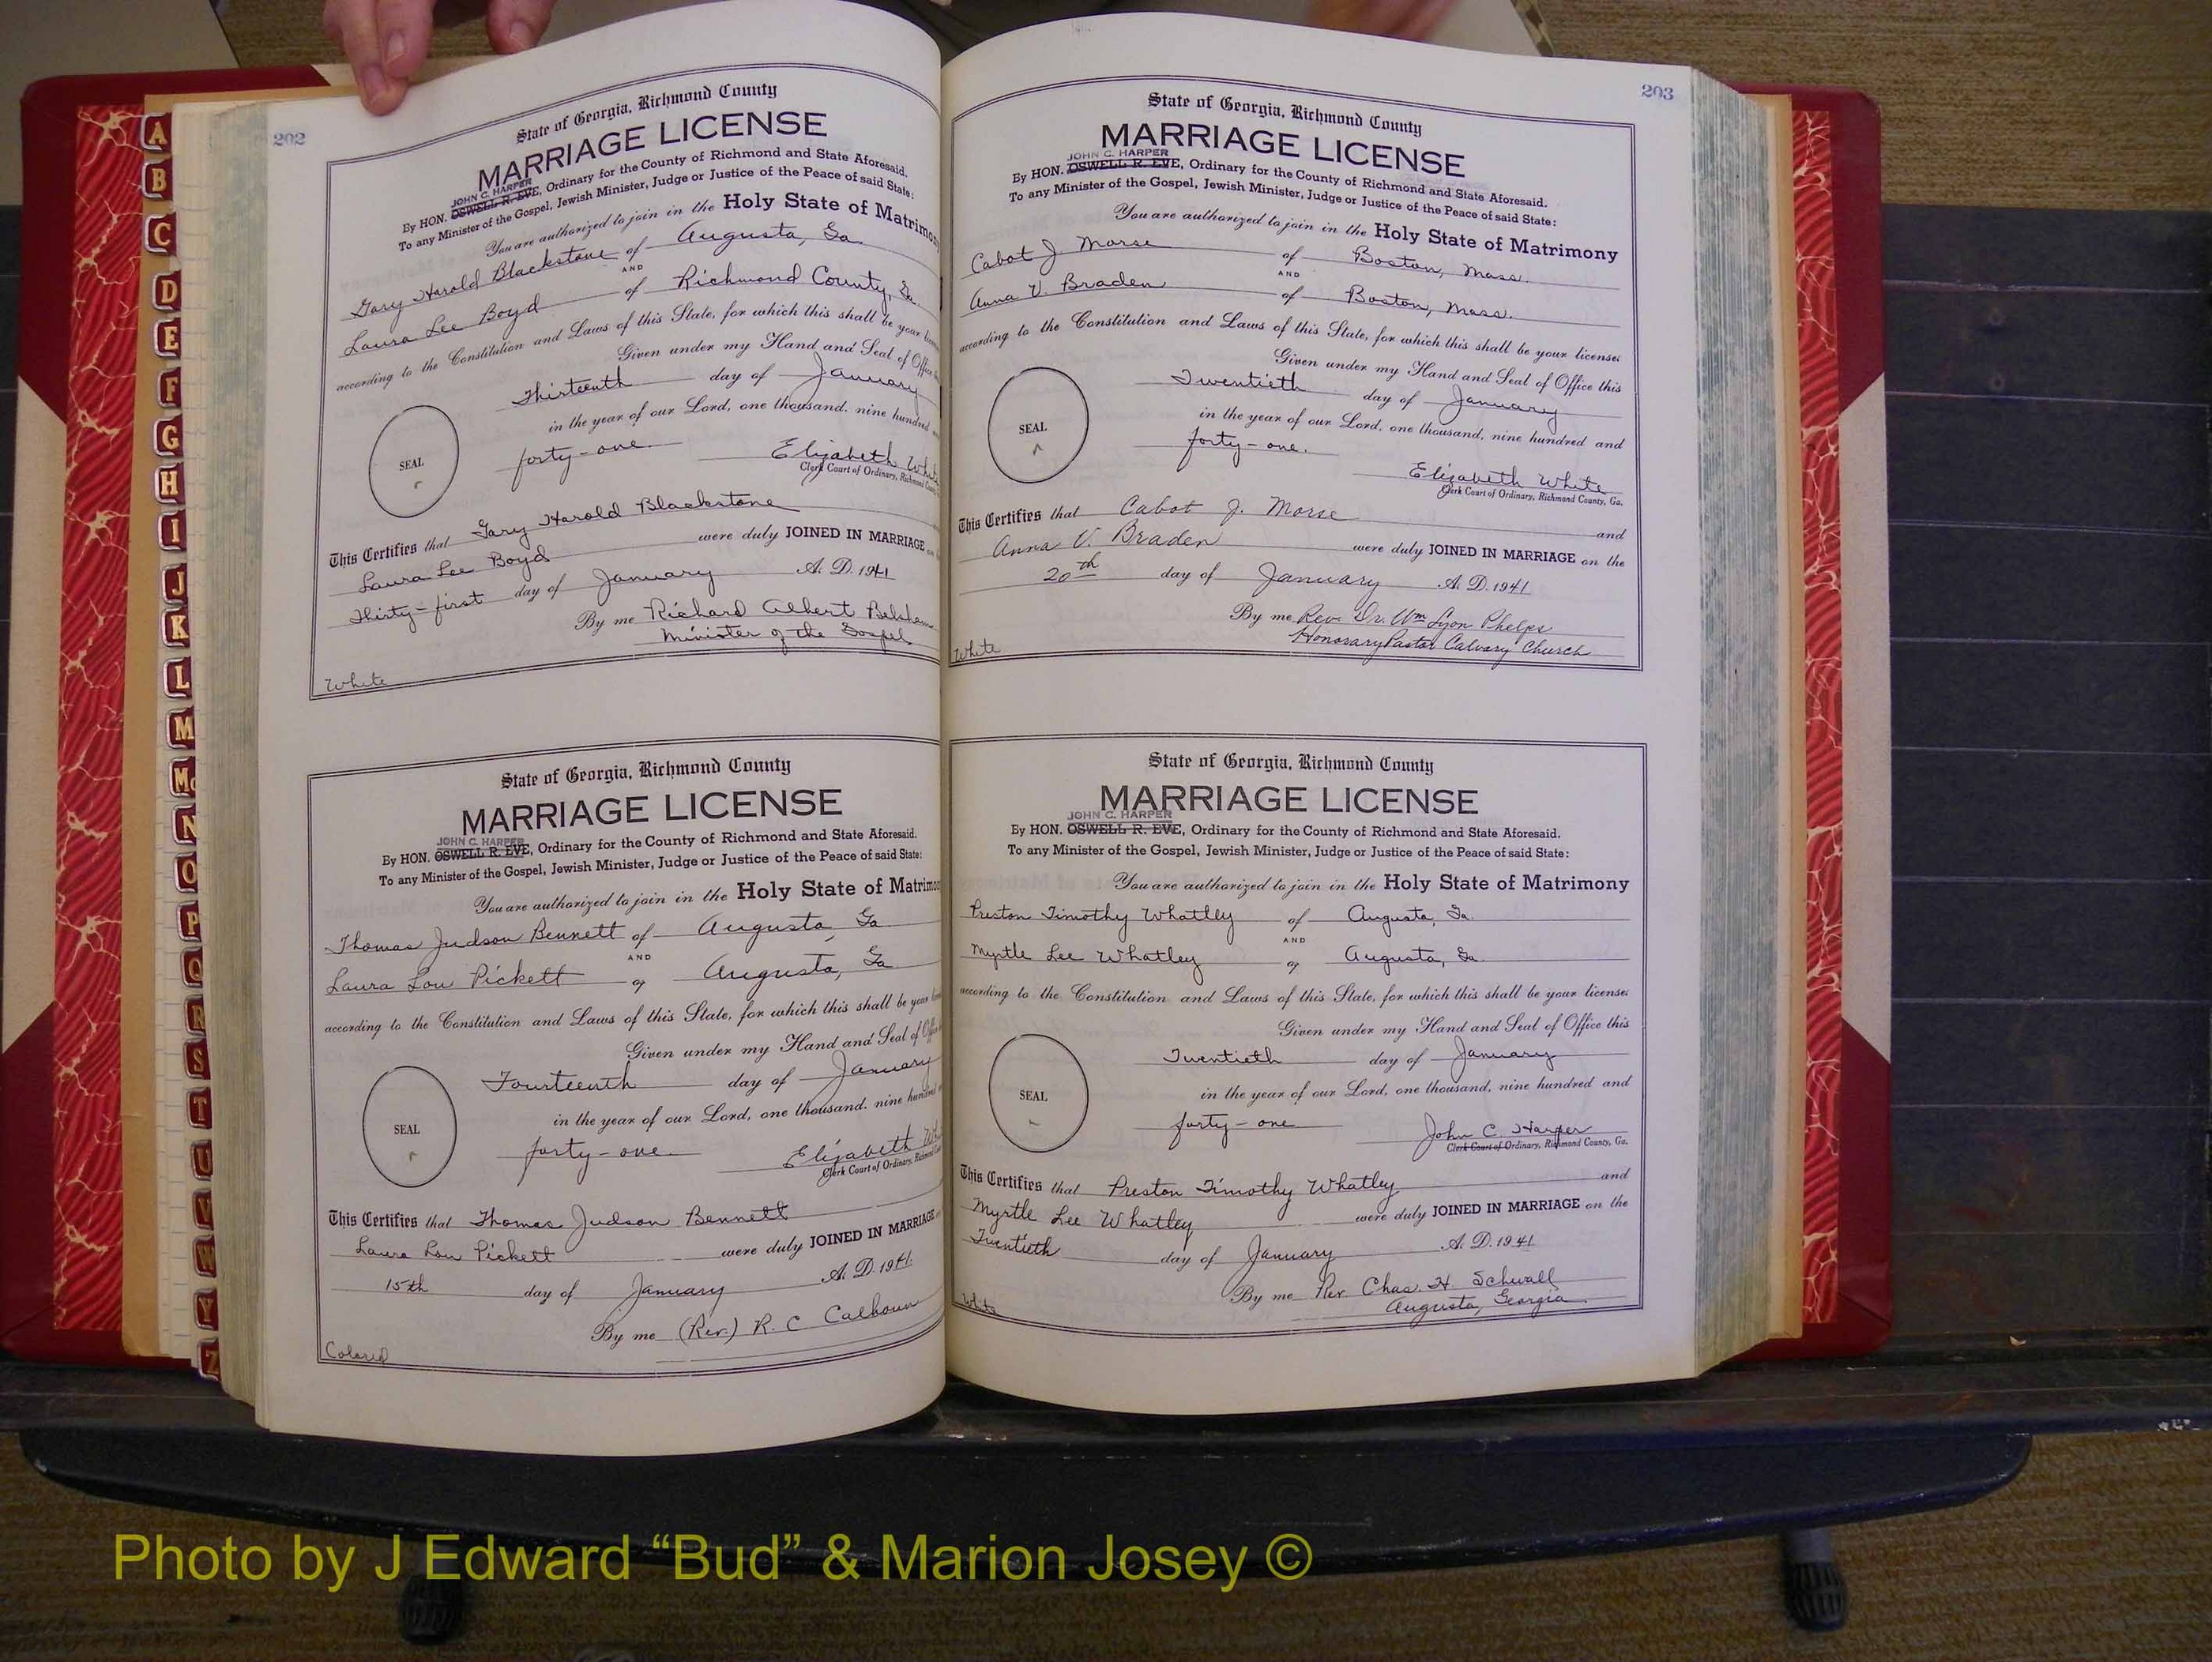 202
State of Georgia, Richmond County
MARRIAGE LICENSE
JOHN C. HARPER
By HON. OSWELL R. EVE, Ordinary for the County of Richmond and State Aforesaid.
To any Minister of the Gospel, Jewish Minister, Judge or Justice of the Peace of said State:
You are authorized to join in the Holy State of Matrimony
Gary Harold Blackstone of Augusta, Ga.
AND
Laura Lee Boyd of Richmond County, Ga.
according to the Constitution and Laws of this State, for which this shall be your
Given under my Hand and Seal of Office
Thirteenth day of January
in the year of our Lord, one thousand, nine hundred
forty-one.
SEAL
Elizabeth
Clerk Court of Ordinary, Richmond
This Certifies that Gary Harold Blackstone
Laura Lee Boyd were duly JOINED IN MARRIAGE
Thirty-first day of January A. D. 1941
By me Richard Albert
Minister of the Gospel
White
State of Georgia, Richmond County
MARRIAGE LICENSE
JOHN C. HARPER
By HON. OSWELL R. EVE, Ordinary for the County of Richmond and State Aforesaid.
To any Minister of the Gospel, Jewish Minister, Judge or Justice of the Peace of said State:
You are authorized to join in the Holy State of Matrimo
Thomas Judson Bennett of Augusta, Ga
AND
Laura Lou Pickett of Augusta, Ga
according to the Constitution and Laws of this State, for which this shall be your
Given under my Hand and Seal of
Fourteenth day of January
in the year of our Lord, one thousand, nine hundred
forty-one.
SEAL
Elizabeth
Clerk Court of Ordinary, Richmond
This Certifies that Thomas Judson Bennett
Laura Lou Pickett were duly JOINED IN MARRIAGE
15th day of January A. D. 1941
By me (Rev.) R. C Calhoun
Colored
203
State of Georgia, Richmond County
MARRIAGE LICENSE
JOHN C. HARPER
By HON. OSWELL R. EVE, Ordinary for the County of Richmond and State Aforesaid.
To any Minister of the Gospel, Jewish Minister, Judge or Justice of the Peace of said State:
You are authorized to join in the Holy State of Matrimony
Cabot J Morse of Boston, Mass.
AND
Anna V. Braden of Boston, Mass.
according to the Constitution and Laws of this State, for which this shall be your license:
Given under my Hand and Seal of Office this
Twentieth day of January
in the year of our Lord, one thousand, nine hundred and
forty-one.
SEAL
Elizabeth White
Clerk Court of Ordinary, Richmond County, Ga.
This Certifies that Cabot J. Morse and
Anna V. Braden were duly JOINED IN MARRIAGE on the
20th day of January A. D. 1941
By me Rev. Dr. Wm Lyon Phelps
Honorary Pastor Calvary Church
White
State of Georgia, Richmond County
MARRIAGE LICENSE
JOHN C. HARPER
By HON. OSWELL R. EVE, Ordinary for the County of Richmond and State Aforesaid.
To any Minister of the Gospel, Jewish Minister, Judge or Justice of the Peace of said State:
You are authorized to join in the Holy State of Matrimony
Preston Timothy Whatley of Augusta, Ga.
AND
Myrtle Lee Whatley of Augusta, Ga.
according to the Constitution and Laws of this State, for which this shall be your license:
Given under my Hand and Seal of Office this
Twentieth day of January
in the year of our Lord, one thousand, nine hundred and
forty-one
SEAL
John C. Harper
Clerk Court of Ordinary, Richmond County, Ga.
This Certifies that Preston Timothy Whatley and
Myrtle Lee Whatley were duly JOINED IN MARRIAGE on the
Twentieth day of January A. D. 1941
By me Rev Chas. H. Schwall
Augusta, Georgia
White
A
B
C
D
E
F
G
H
I
J
K
L
M
Mc
N
O
P
Q
R
S
T
U
V
W
Y
Z
Photo by J Edward “Bud” & Marion Josey ©